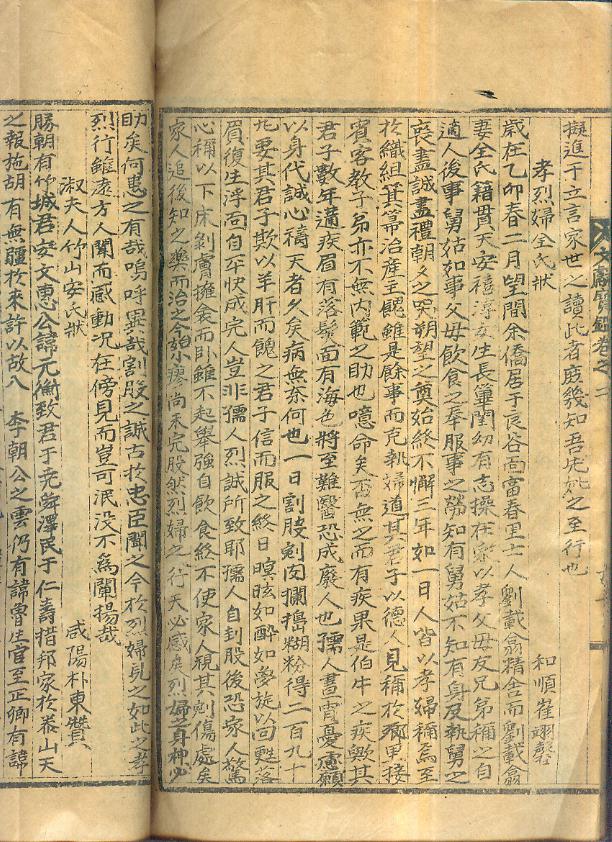 擬進于立言家世之讀此者庶幾知吾先妣之至行也
和順崔翊
孝烈婦全氏狀
歲在乙卯春二月望間余僑居于良谷面富春里士人劉載翕精舍而劉載翕
妻全氏籍貫天安禧淳女生長簞閨幼有志操在家以孝父母友兄弟稱之自
適人後事舅姑如事父母飲食之奉服事之勞知有舅姑不知有身及執舅之
喪盡誠盡禮朝夕之哭朔望之奠始終不懈三年如一日人皆以孝婦稱焉至
於織組箕箒治産主饋雖是餘事而克執婦道其君子以德人見稱於鄉里接
賓客教子弟亦不無內範之助也噫命矣否無之而有疾果是伯牛之疾歟其
君子數年遘疾眉有落髮面有海色將至難醫恐成廢人也孺人晝宵憂慮願
以身代誠心禱天者久矣病無奈何也一日割股剜肉攔搗糊粉得二百九十
九妻其君子欺以羊肝而餽之君子信而服之終日暝眩如醉如夢旋以向甦落
眉復生浮面自平快成完人豈非孺人烈誠所致耶孺人自刲股後恐家人驚
心稱以下床剝膚擁衾而卧雖不起舉强自飲食終不使家人視其劍傷處矣
家人追後知之藥而治之今始小瘳尚未完股然烈婦之行天必感矣烈婦之身神必
助矣何患之有哉嗚呼異哉割股之誠古於忠臣聞之今於烈婦見之如此之孝
烈行雖遠方人聞而感動況在傍見而豈可泯没不爲闡揚哉
咸陽朴東贊
淑夫人竹山安氏狀
勝朝有竹城君安文惠公諱元衡致君于堯舜澤民于仁壽措邦家於泰山天
之報施胡有無疆於來許以故入 李朝公之雲仍有諱曾生官至正卿有諱